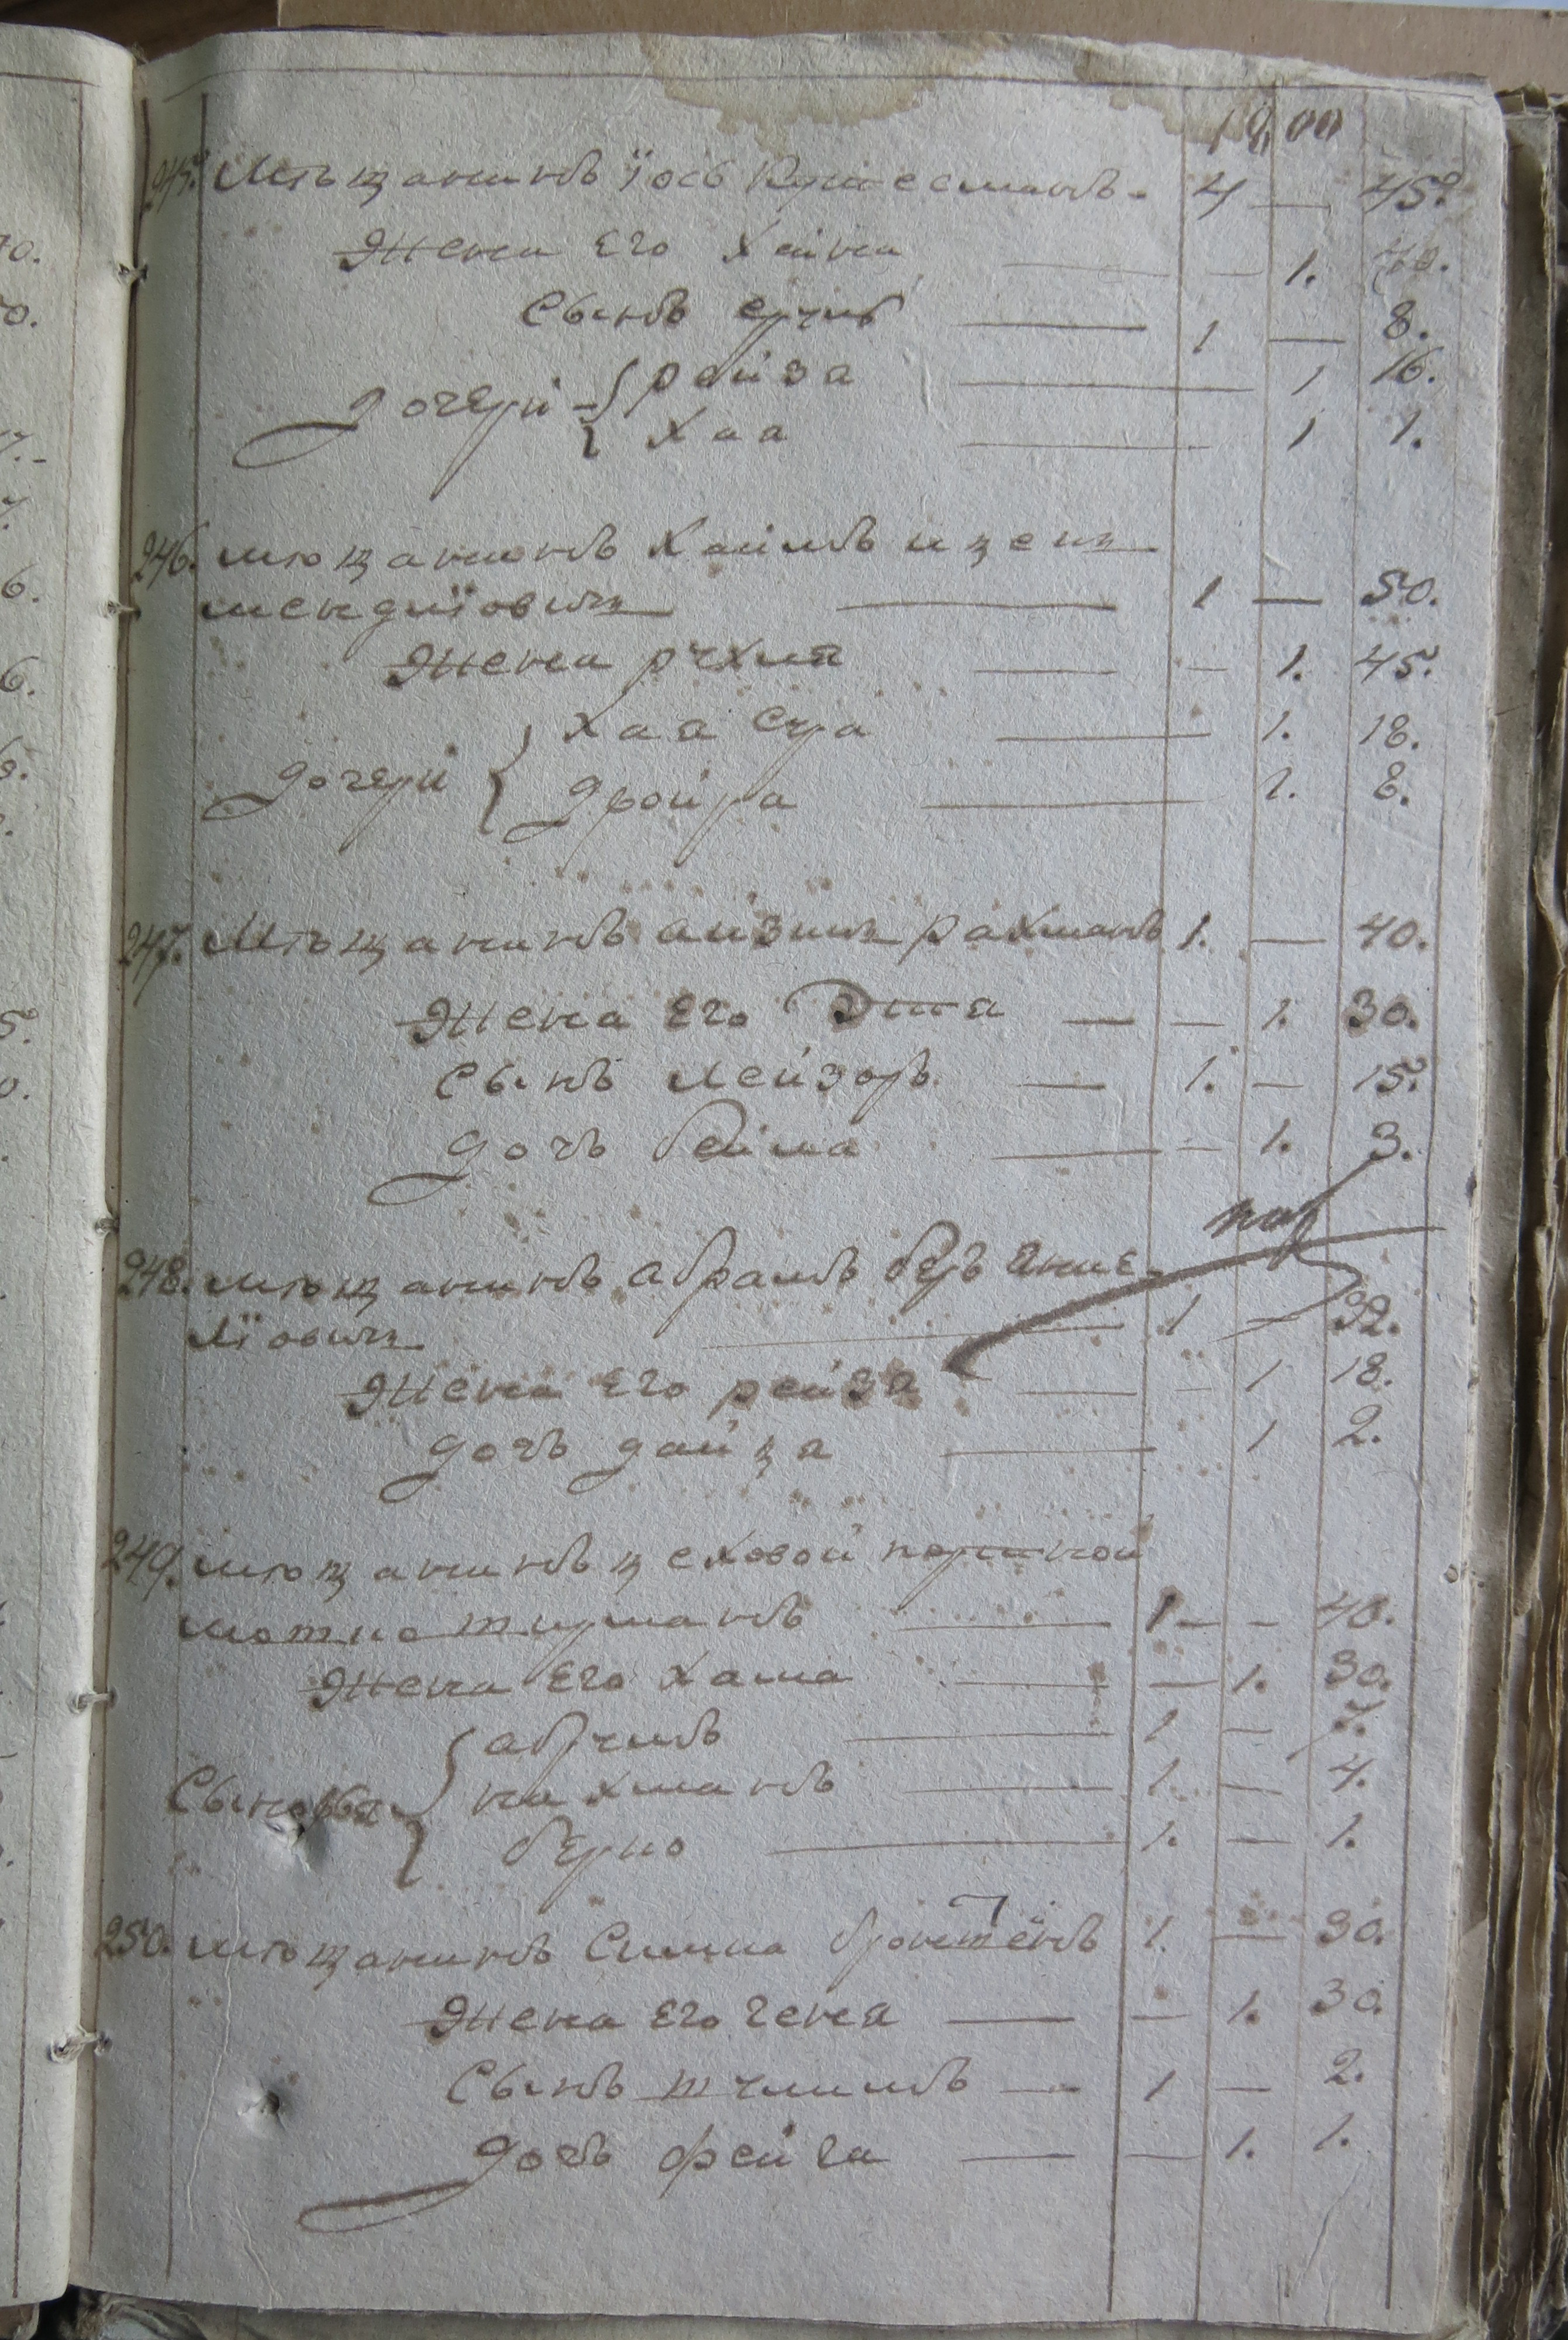 245. Мѣщанинъ Їось — 45.
Жена Его Хайка — 1. 40.
Сынъ Сруль — 1 — 8.
Дочери { рейза — 1 16.
Хая — 1 1.
246. мѣщанинъ Хаимъ ицек
менділовичъ — 1 — 50.
Жена рухля — 1. 45.
Дочери { Хая Сура — 1. 18.
Двойра — 1. 8.
247. Мѣщанинъ айзикъ рахманъ 1. — 40.
Жена Его Этя — 1. 30.
Сынъ Лейзоръ — 1. — 15.
Дочь бейла — 1. 3.
248. мѣщанинъ абрамъ беръ Янке-
лїовичъ — 1 — 32.
Жена Его рейза — 1 18.
дочь — 1 2.
249. мѣщанинъ цеховой портной
мотио — 1 — 40.
Жена Его Хана — 1. 30.
абрумъ — 1 — 7.
Сыновья { нахманъ — 1. — 4.
берко — 1. — 1.
250. мѣщанинъ Симха 1. — 30.
Жена Его геня — 1. 30.
Сынъ — 1 — 2.
дочь фейга — 1. 1.